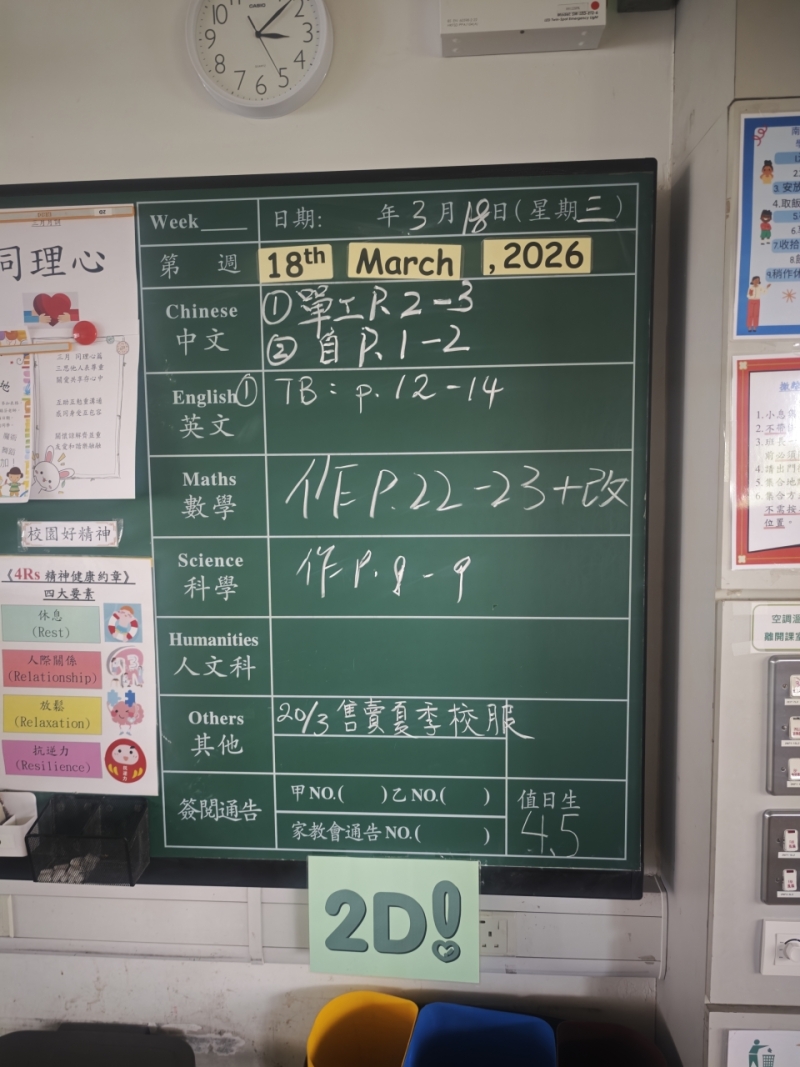 CASIO
10 9 8 7 6 5 4 3 2
Week____ 日期: 年3月18日(星期三)
第 週 18th March , 2026
Chinese
中文
①單工P.2-3
②自P.1-2
English
英文
① TB: p.12-14
Maths
數學
作P.22-23+改
Science
科學
作P.8-9
Humanities
人文科
Others
其他
20/3 售賣夏季校服
簽閱通告
甲NO.( )乙NO.( )
家教會通告NO.( )
值日生
45
2D!
同理心
三月 同理心篇
校園好精神
《4Rs 精神健康約章》
四大要素
休息
(Rest)
人際關係
(Relationship)
放鬆
(Relaxation)
抗逆力
(Resilience)
空調溫
離開課室